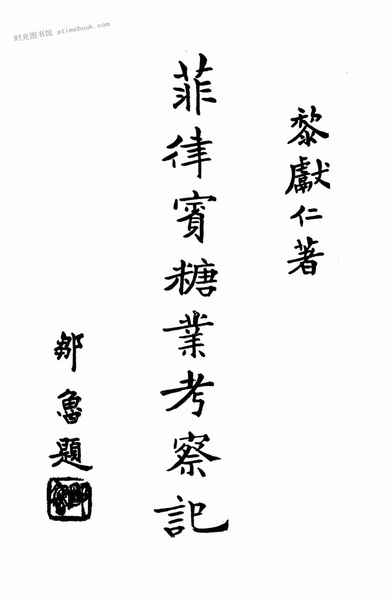 时光图书馆 atimebook.com
黎獻仁著
菲律賓糖業考察記
鄒魯題